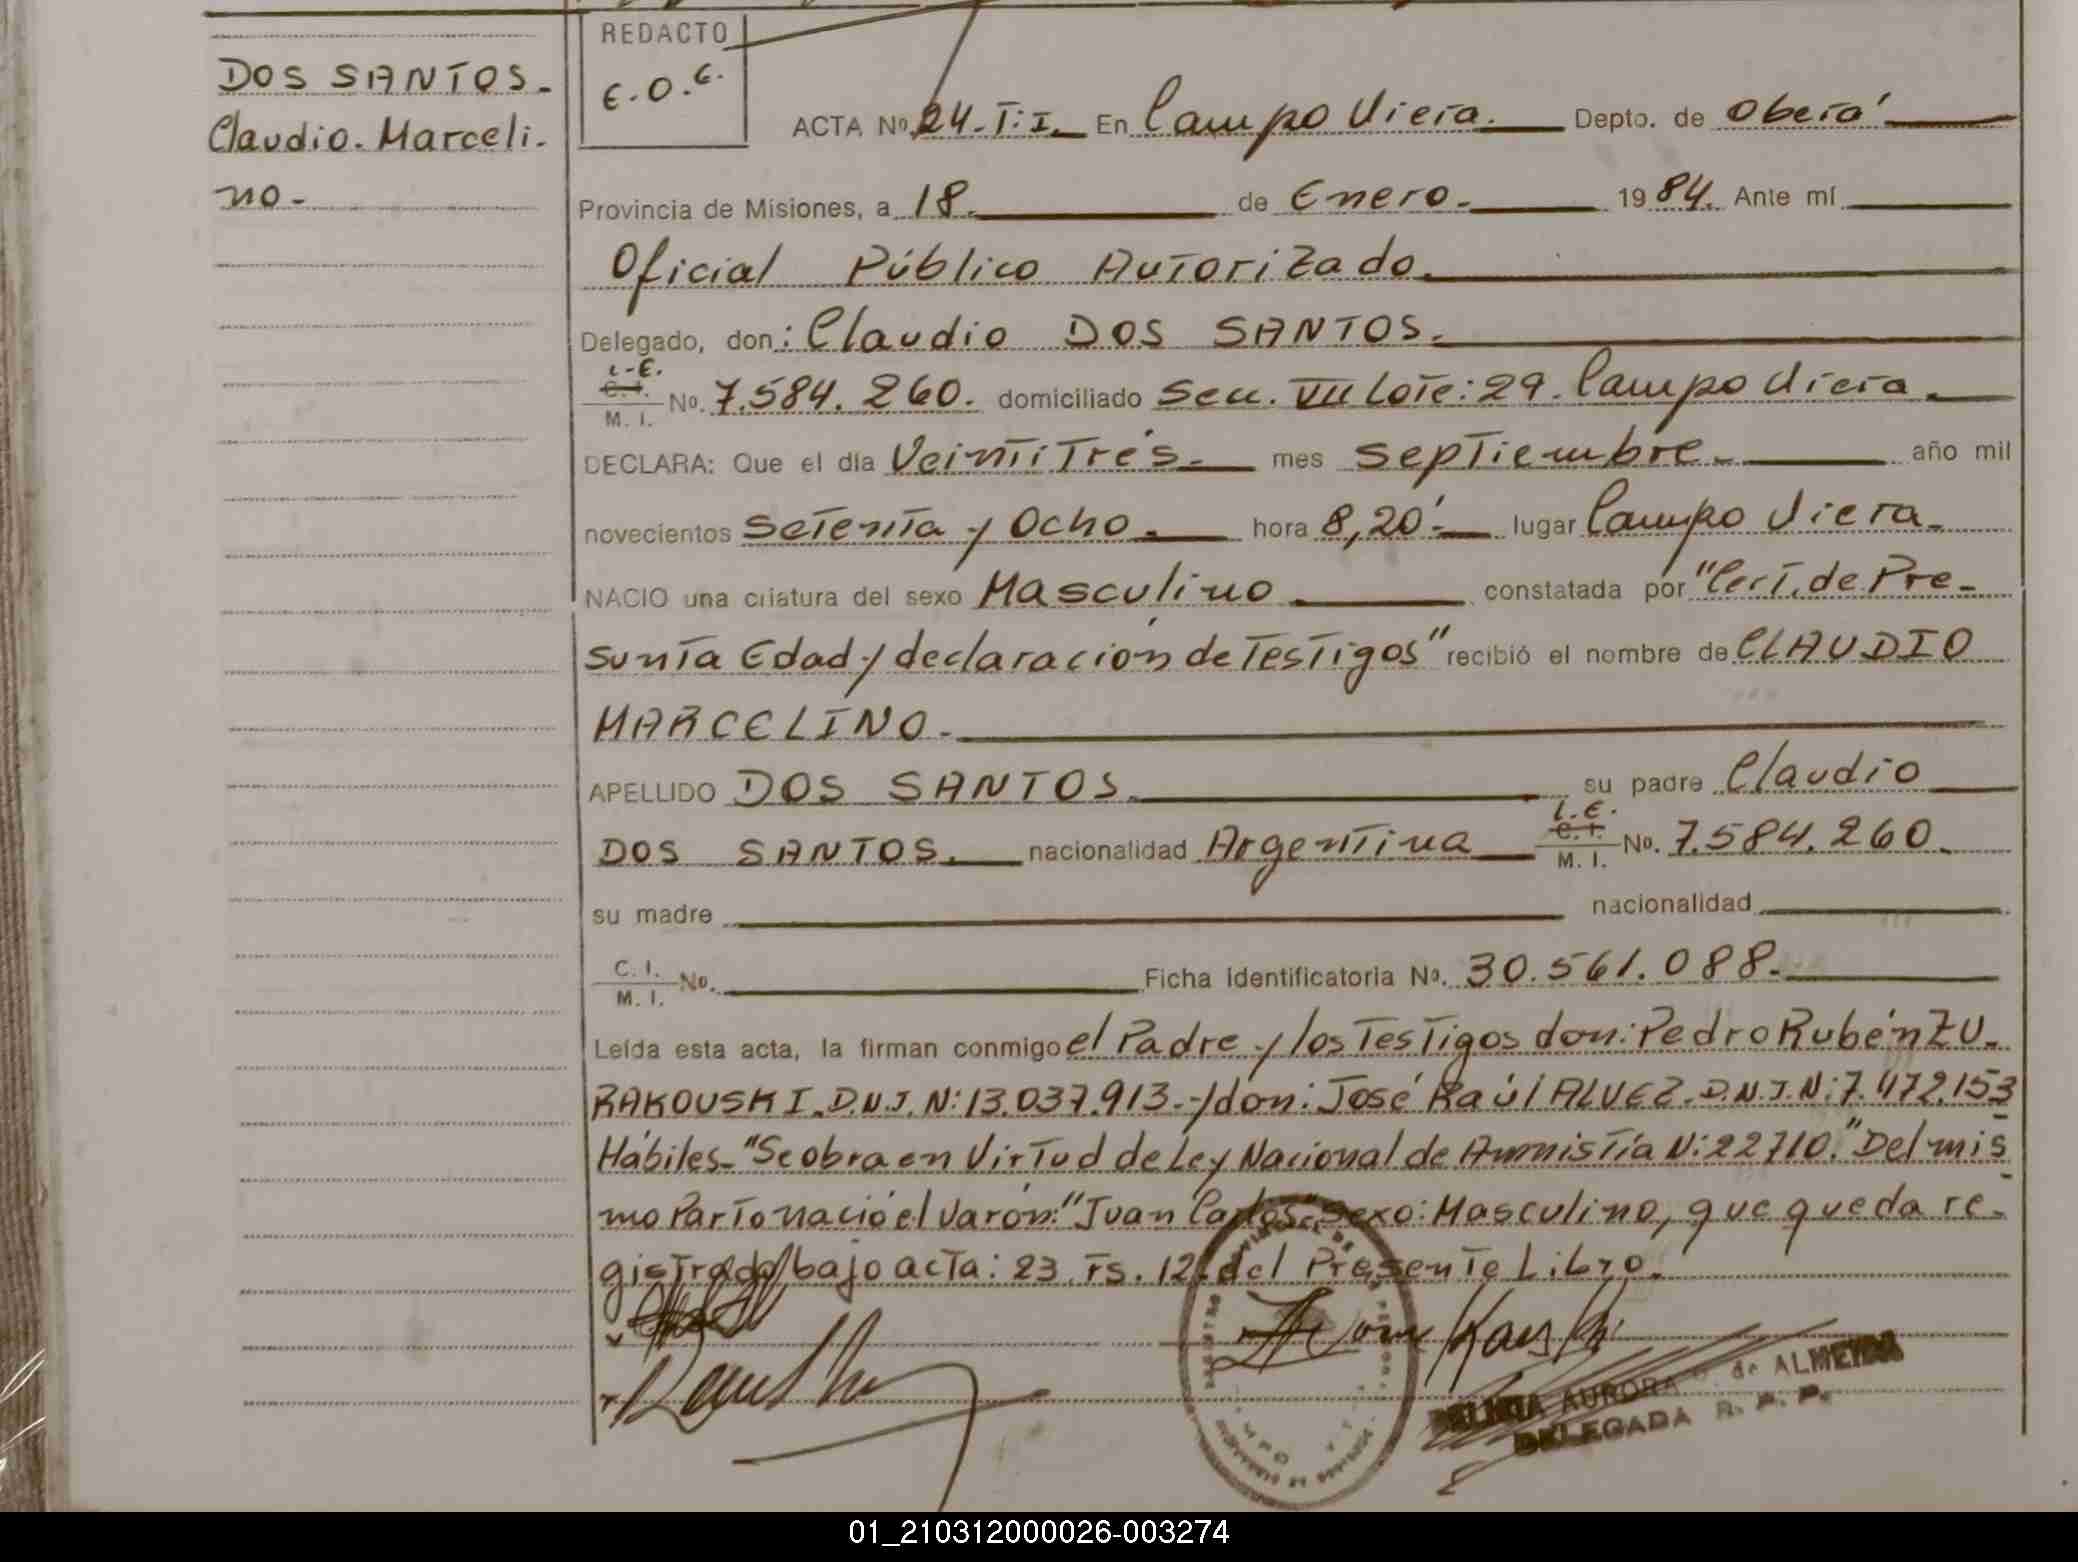 DOS SANTOS.
Claudio. Marceli.
no.-
REDACTO
E.O.E.
ACTA Nº 24. T: I. En Campo Viera. Depto. de Oberá
Provincia de Misiones, a 18. de Enero. 1984. Ante mí
Oficial Público Autorizado.
Delegado, don: Claudio DOS SANTOS.
L.E.
C.I.
M. I. No. 7.584.260. domiciliado Secc. VII Lote: 29. Campo Viera.
DECLARA: Que el día Veintitrés. mes Septiembre. año mil
novecientos Setenta y Ocho. hora 8,20'. lugar Campo Viera.
NACIO una criatura del sexo Masculino constatada por "Cert. de Pre-
sunta Edad y declaración de Testigos" recibió el nombre de CLAUDIO
MARCELINO.
APELLIDO DOS SANTOS. su padre Claudio
DOS SANTOS. nacionalidad Argentina L.E. C.I. M. I. No. 7.584.260.
su madre nacionalidad
C. I.
M. I. No. Ficha identificatoria No. 30.561.088.
Leída esta acta, la firman conmigo el Padre y los Testigos don: Pedro Rubén ZU-
RAKOUSKI. D.N.I. N: 13.037.913.- y don: José Raúl ALVEZ. D.N.I. N: 7.472.153
Hábiles.- "Se obra en Virtud de Ley Nacional de Amnistía N: 22710." Del mis
mo Parto nació el Varón: "Juan Carlos" Sexo: Masculino, que queda re-
gistrado bajo acta: 23. Fs. 12. del Presente Libro.
AURORA de ALMEIDA
DELEGADA R. P. P.
01_210312000026-003274